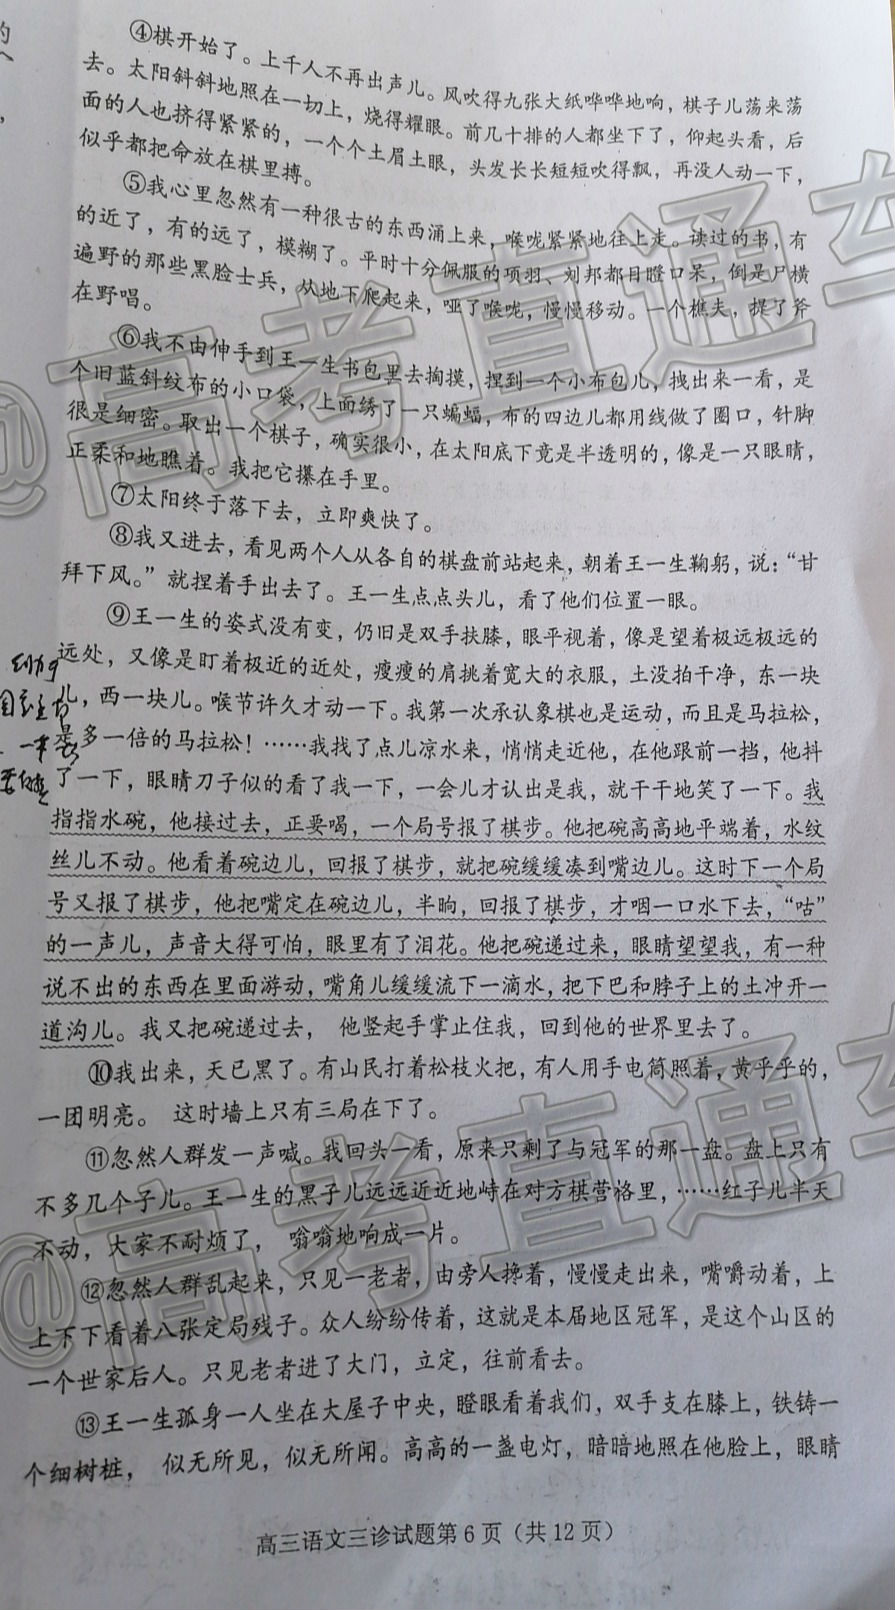 ④棋开始了。上千人不再出声儿。风吹得九张大纸哗哗地响，棋子儿荡来荡
去。太阳斜斜地照在一切上，烧得耀眼。前几十排的人都坐下了，仰起头看，后
面的人也挤得紧紧的，一个个土眉土眼，头发长长短短吹得飘，再没人动一下，
似乎都把命放在棋里搏。
⑤我心里忽然有一种很古的东西涌上来，喉咙紧紧地往上走。读过的书，有
的近了，有的远了，模糊了。平时十分佩服的项羽、刘邦都目瞪口呆，倒是尸横
遍野的那些黑脸士兵，从地下爬起来，哑了喉咙，慢慢移动。一个樵夫，提了斧
在野唱。
⑥我不由伸手到王一生书包里去掏摸，捏到一个小布包儿，拽出来一看，是
个旧蓝斜纹布的小口袋，上面绣了一只蝙蝠，布的四边儿都用线做了圈口，针脚
很是细密。取出一个棋子，确实很小，在太阳底下竟是半透明的，像是一只眼睛，
正柔和地瞧着。我把它攥在手里。
⑦太阳终于落下去，立即爽快了。
⑧我又进去，看见两个人从各自的棋盘前站起来，朝着王一生鞠躬，说：“甘
拜下风。”就捏着手出去了。王一生点点头儿，看了他们位置一眼。
⑨王一生的姿式没有变，仍旧是双手扶膝，眼平视着，像是望着极远极远的
远处，又像是盯着极近的近处，瘦瘦的肩挑着宽大的衣服，土没拍干净，东一块
儿，西一块儿。喉节许久才动一下。我第一次承认象棋也是运动，而且是马拉松，
是多一倍的马拉松！……我找了点儿凉水来，悄悄走近他，在他跟前一挡，他抖
了一下，眼睛刀子似的看了我一下，一会儿才认出是我，就干干地笑了一下。我
指指水碗，他接过去，正要喝，一个局号报了棋步。他把碗高高地平端着，水纹
丝儿不动。他看着碗边儿，回报了棋步，就把碗缓缓凑到嘴边儿。这时下一个局
号又报了棋步，他把嘴定在碗边儿，半晌，回报了棋步，才咽一口水下去，“咕”
的一声儿，声音大得可怕，眼里有了泪花。他把碗递过来，眼睛望望我，有一种
说不出的东西在里面游动，嘴角儿缓缓流下一滴水，把下巴和脖子上的土冲开一
道沟儿。我又把碗递过去，他竖起手掌止住我，回到他的世界里去了。
⑩我出来，天已黑了。有山民打着松枝火把，有人用手电筒照着，黄乎乎的，
一团明亮。这时墙上只有三局在下了。
⑪忽然人群发一声喊。我回头一看，原来只剩了与冠军的那一盘。盘上只有
不多几个子儿。王一生的黑子儿远远近近地峙在对方棋营格里，……红子儿半天
不动，大家不耐烦了，嗡嗡地响成一片。
⑫忽然人群乱起来，只见一老者，由旁人搀着，慢慢走出来，嘴嚼动着，上
上下下看着八张定局残子。众人纷纷传着，这就是本届地区冠军，是这个山区的
一个世家后人。只见老者进了大门，立定，往前看去。
⑬王一生孤身一人坐在大屋子中央，瞪眼看着我们，双手支在膝上，铁铸一
个细树桩，似无所见，似无所闻。高高的一盏电灯，暗暗地照在他脸上，眼睛
高三语文三诊试题第6页（共12页）
@高考直通车
@高考直通车